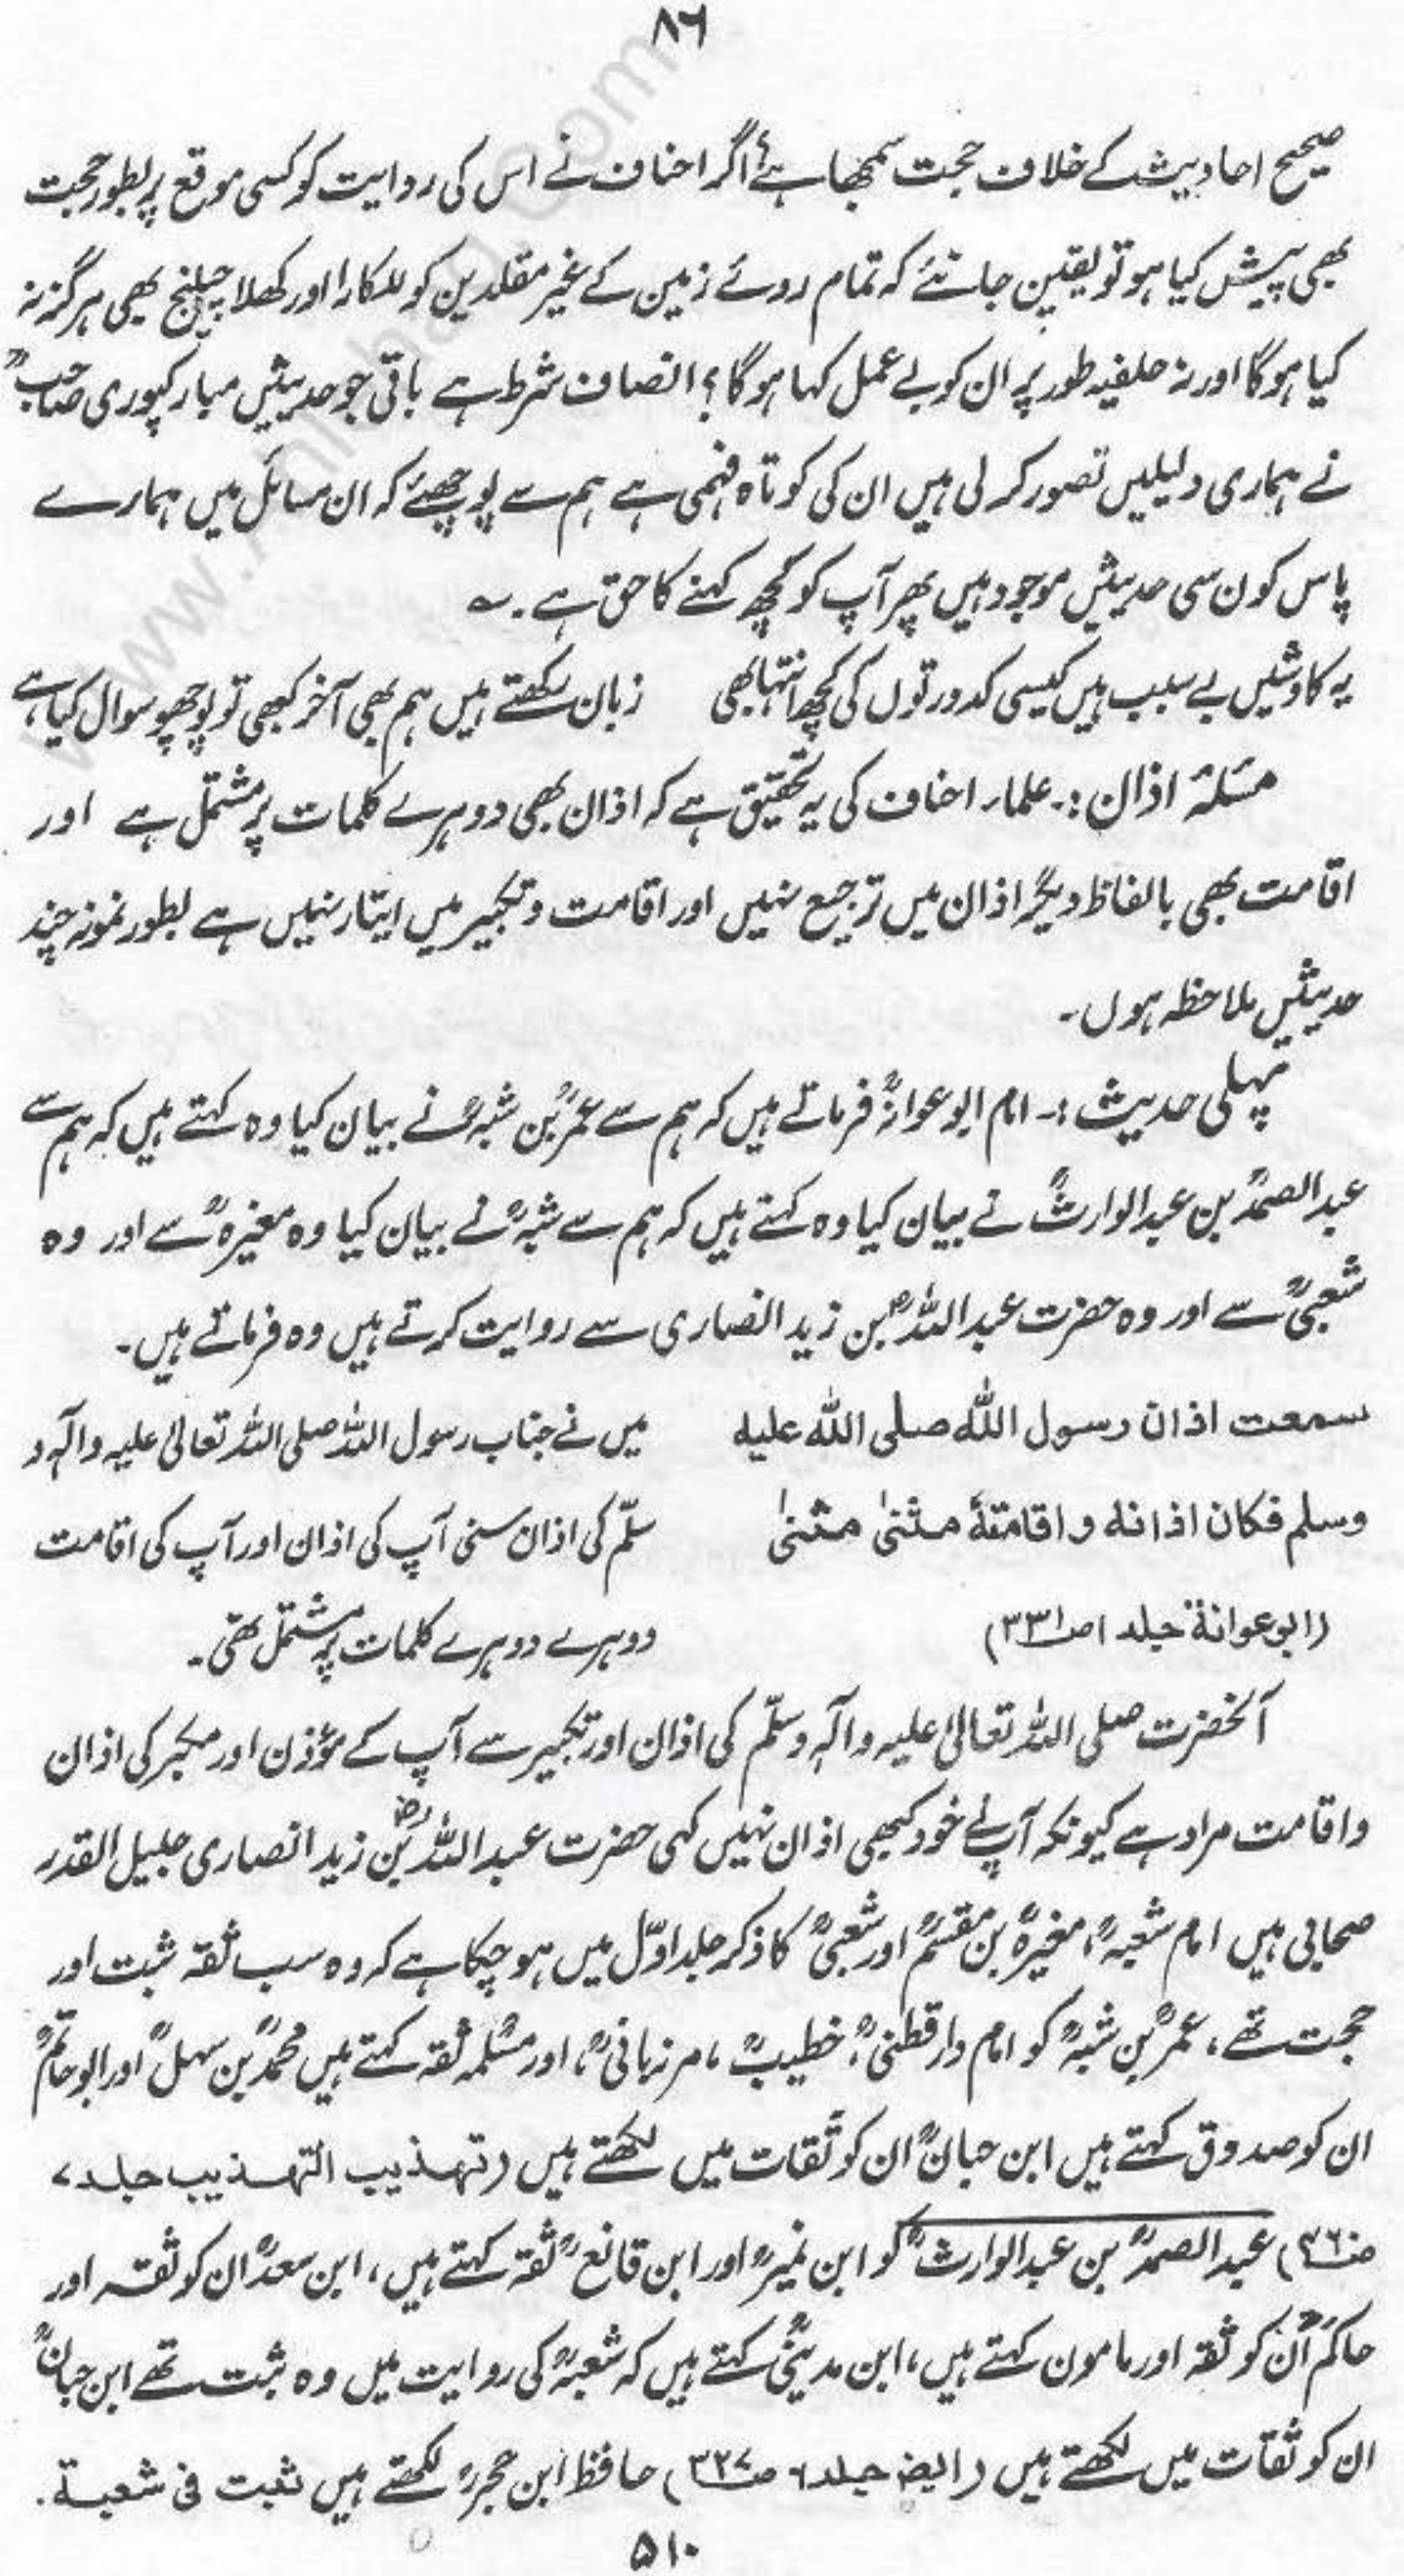 ۸۶
صحیح احادیث کے خلاف حجت سمجھا ہے اگر احناف نے اس کی روایت کو کسی موقع پر بطور حجت
بھی پیش کیا ہو تو یقین جانئے کہ تمام روئے زمین کے غیر مقلدین کو للکارا اور کھلا چیلنج بھی ہرگز نہ
کیا ہوگا اور نہ حلفیہ طور پر ان کو بے عمل کہا ہوگا؟ انصاف شرط ہے باقی جو حدیثیں مبارکپوری صاحبؒ
نے ہماری دلیلیں تصور کر لی ہیں ان کی کوتاہ فہمی ہے ہم سے پوچھئے کہ ان مسائل میں ہمارے
پاس کون سی حدیثیں موجود ہیں پھر آپ کو کچھ کہنے کا حق ہے۔ ؎
یہ کاوشیں بے سبب ہیں کیسی کدورتوں کی کچھ انتہا بھی زبان رکھتے ہیں ہم بھی آخر کبھی تو پوچھو سوال کیا ہے
مسئلہ اذان :۔ علماء احناف کی یہ تحقیق ہے کہ اذان بھی دوہرے کلمات پر مشتمل ہے اور
اقامت بھی بالفاظ دیگر اذان میں ترجیع نہیں اور اقامت و تکبیر میں ایتار نہیں ہے بطور نمونہ چند
حدیثیں ملاحظہ ہوں۔
پہلی حدیث :۔ امام ابوعوانہؒ فرماتے ہیں کہ ہم سے عمرؒ بن شبہؒ نے بیان کیا وہ کہتے ہیں کہ ہم سے
عبدالصمدؒ بن عبدالوارثؒ نے بیان کیا وہ کہتے ہیں کہ ہم سے شبہؒ نے بیان کیا وہ مغیرہؒ سے اور وہ
شعبیؒ سے اور وہ حضرت عبداللہؓ بن زید انصاری سے روایت کرتے ہیں وہ فرماتے ہیں۔
سمعت اذان رسول اللہ صلی اللہ علیہ میں نے جناب رسول اللہ صلی اللہ تعالیٰ علیہ وآلہ و
وسلم فکان اذانہ و اقامتہٗ مثنیٰ مثنیٰ سلّم کی اذان سنی آپ کی اذان اور آپ کی اقامت
(ابوعوانۃ جلد ۱ ص۳۳۱) دوہرے دوہرے کلمات پر مشتمل تھی۔
آنحضرت صلی اللہ تعالیٰ علیہ وآلہ وسلّم کی اذان اور تکبیر سے آپ کے مؤذن اور مکبر کی اذان
واقامت مراد ہے کیونکہ آپ نے خود کبھی اذان نہیں کہی حضرت عبداللہؓ بن زید انصاری جلیل القدر
صحابی ہیں امام شعبہؒ، مغیرہؒ بن مقسمؒ اور شعبیؒ کا ذکر جلد اوّل میں ہو چکا ہے کہ وہ سب ثقہ ثبت اور
حجت تھے، عمرؒ بن شبہؒ کو امام دارقطنیؒ، خطیبؒ، مرزبانیؒ، اور مسلمہؒ ثقہ کہتے ہیں محمدؒ بن سہلؒ اور ابوحاتمؒ
ان کو صدوق کہتے ہیں ابن حبانؒ ان کو ثقات میں لکھتے ہیں (تہذیب التہذیب جلد ۷
ص۴۶۰) عبدالصمدؒ بن عبدالوارثؒ کو ابن نمیرؒ اور ابن قانعؒ ثقہ کہتے ہیں، ابن سعدؒ ان کو ثقہ اور
حاکمؒ ان کو ثقہ اور مامون کہتے ہیں، ابن مدینیؒ کہتے ہیں کہ شعبہؒ کی روایت میں وہ ثبت تھے ابن حبانؒ
ان کو ثقات میں لکھتے ہیں (ایضاً جلد ۶ ص۳۲۷) حافظ ابن حجرؒ لکھتے ہیں ثبت فی شعبۃ۔
۵۱۰